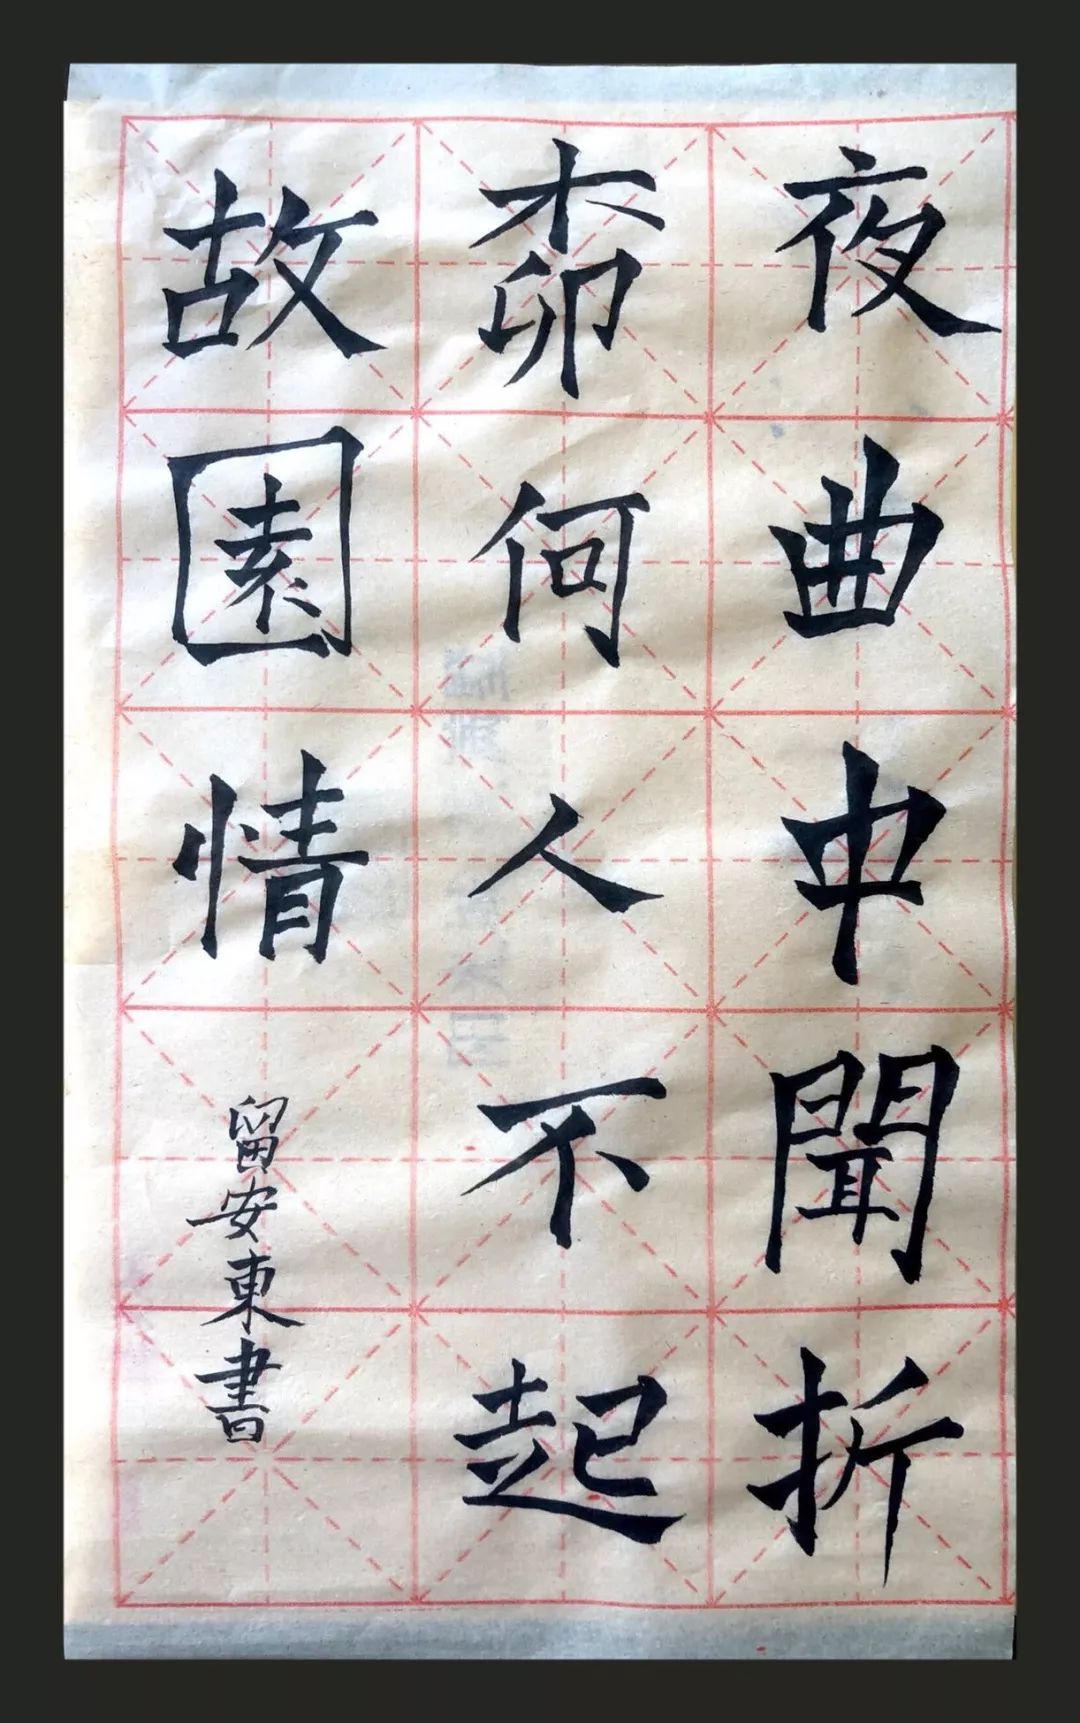 夜曲中聞折
柳何人不起
故園情
留安東書